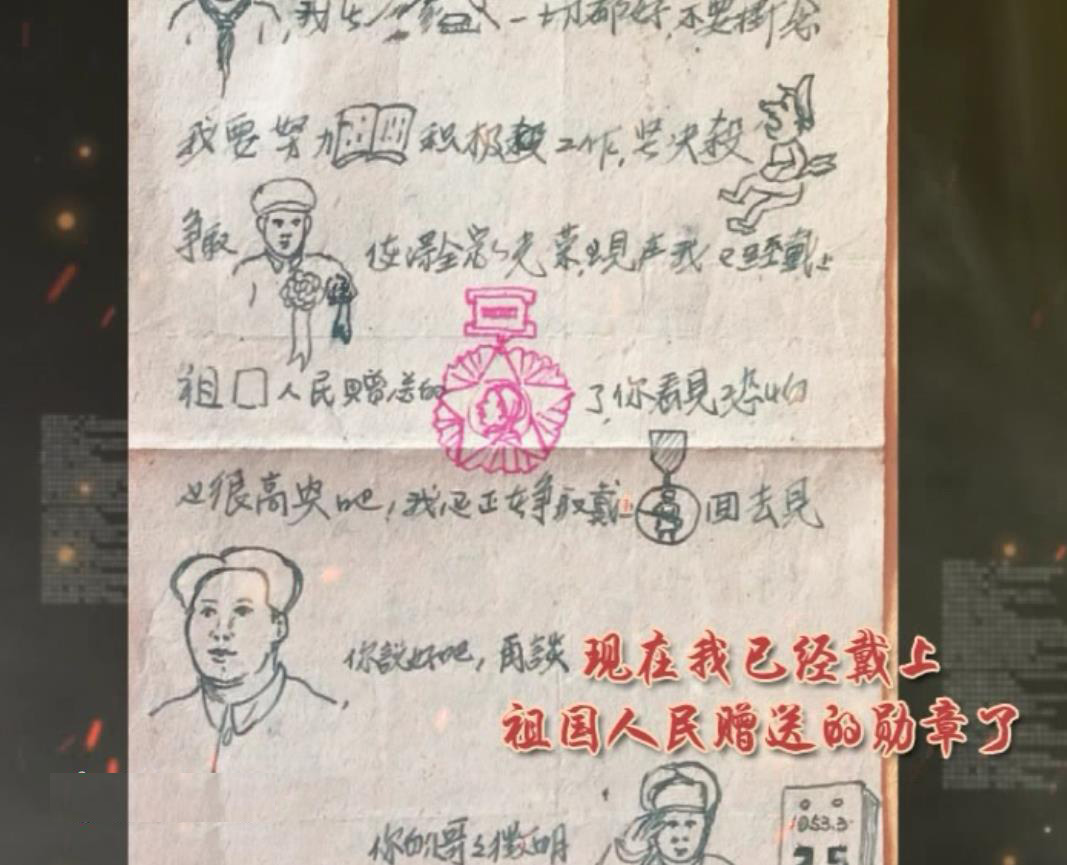 一切都好,不要掛念
我要努力 积极 工作,坚决殺
争取 使得全家光荣,現在我已经戴上
祖 人民赠送的 了,你看見恐怕
也很高兴吧,我还正在争取戴 回去見
你說好吧,再談
现在我已经戴上
祖国人民赠送的勋章了
你的哥 明
1953.3
25